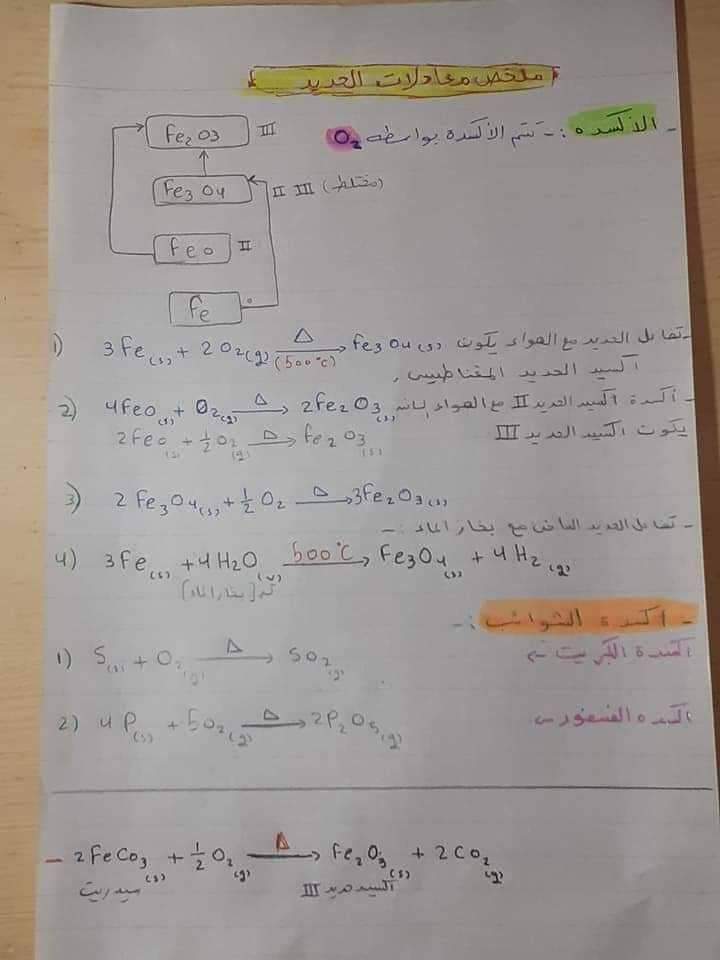 ملخص معادلات الحديد
- الأكسدة :- تتم الأكسدة بواسطة O2
Fe2O3 III
Fe3O4 II III (مختلط)
FeO II
Fe
1) 3Fe(s) + 2O2(g) →Δ (500°C) Fe3O4(s)
- تفاعل الحديد مع الهواء يكون
أكسيد الحديد المغناطيسي
2) 4FeO(s) + O2(g) →Δ 2Fe2O3(s)
- أكسدة أكسيد الحديد II مع الهواء
2FeO(s) + ½O2(g) →Δ Fe2O3(s)
يكون أكسيد الحديد III
3) 2Fe3O4(s) + ½O2 →Δ 3Fe2O3(s)
- تفاعل الحديد الساخن مع بخار الماء :-
4) 3Fe(s) + 4H2O(v) →500°C Fe3O4(s) + 4H2(g)
[بخار الماء]
- اكسدة الشوائب :-
1) S(s) + O2(g) →Δ SO2(g)
اكسدة الكبريت
2) 4P(s) + 5O2(g) →Δ 2P2O5(g)
اكسدة الفسفور
- 2FeCO3(s) + ½O2(g) →Δ Fe2O3(s) + 2CO2(g)
سيدريت
أكسيد حديد III